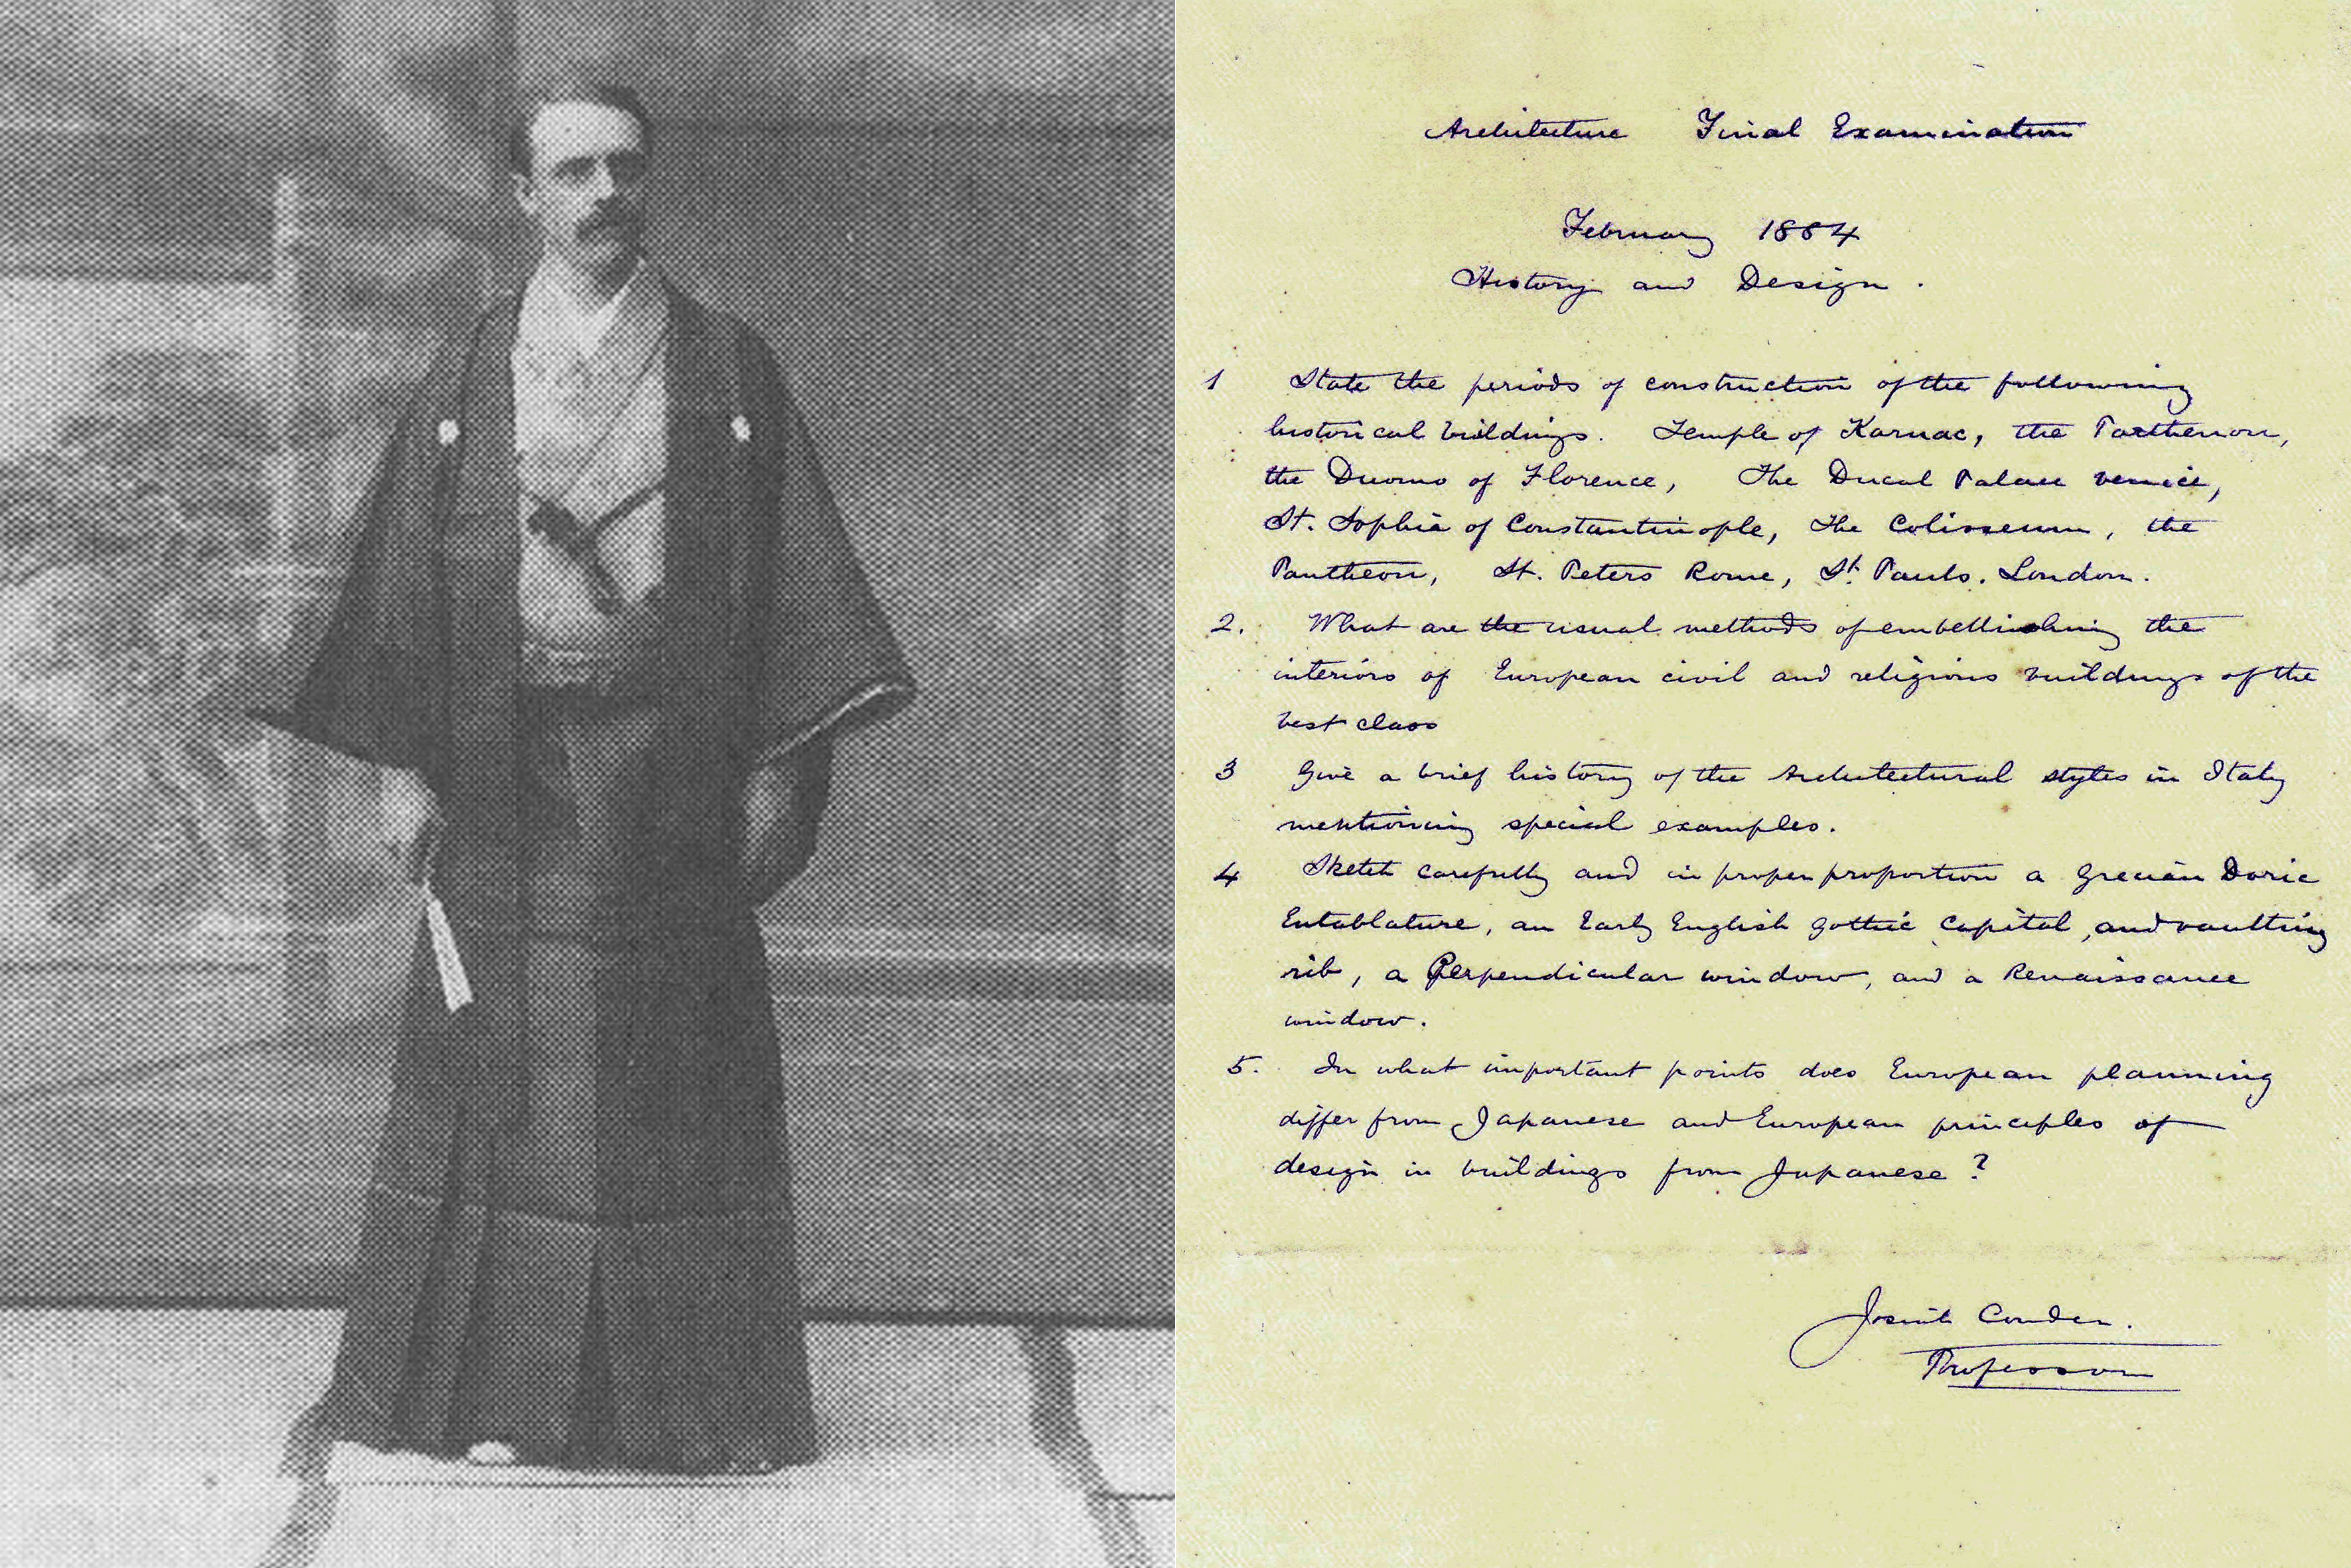 Architecture Final Examination
February 1884
History and Design.
1 State the periods of construction of the following
historical buildings. Temple of Karnac, the Parthenon,
the Duomo of Florence, The Ducal Palace Venice,
St. Sophia of Constantinople, The Colisseum, the
Pantheon, St. Peters Rome, St. Pauls. London.
2. What are the usual methods of embellishing the
interiors of European civil and religious buildings of the
best class
3 Give a brief history of the Architectural styles in Italy
mentioning special examples.
4 Sketch carefully and in proper proportion a Grecian Doric
Entablature, an Early English Gothic Capital, and vaulting
rib, a Perpendicular window, and a Renaissance
window.
5. In what important points does European planning
differ from Japanese and European principles of
design in buildings from Japanese?
Josiah Conder.
Professor